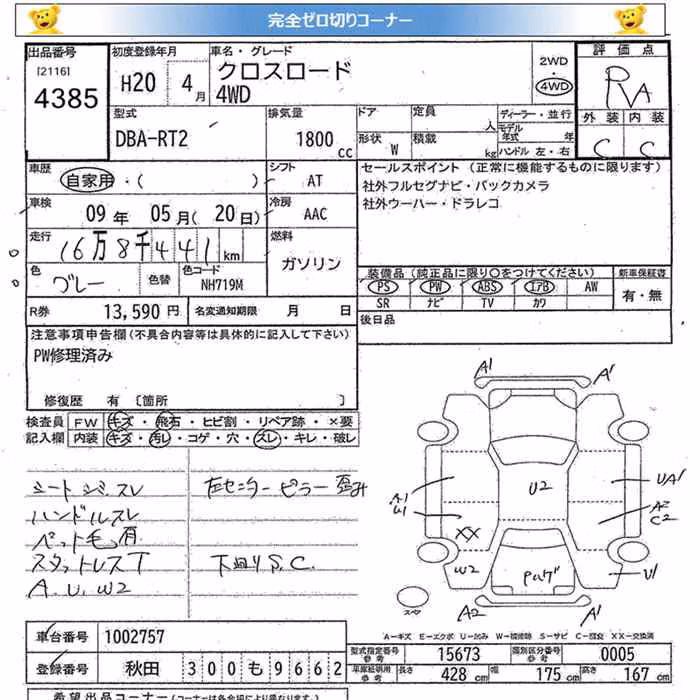 完全ゼロ切りコーナー
出品番号 初度登録年月 車名・グレード 評価点
[2116] 4385 H20 4月 クロスロード 4WD 2WD・4WD RA
外装 内装
C C
型式 排気量 ドア 定員 人 ディーラー・並行
DBA-RT2 1800cc 形状 W 積載 kg モデル年式 年
ハンドル 左・右
車歴 自家用・( ) シフト AT セールスポイント (正常に機能するものに限ります)
社外フルセグナビ・バックカメラ
社外ウーハー・ドラレコ
車検 09年 05月(20日) 冷房 AAC
走行 16万8千441km 燃料 ガソリン
色 グレー 色替 色コード NH719M
装備品(純正品に限り○をつけてください) 新車保証書
PS PW ABS エアB AW 有・無
SR ナビ TV カワ
R券 13,590円 名変通知期限 月 日
後日品
注意事項申告欄(不具合内容等は具体的に記入して下さい)
PW修理済み
修復歴 有 〔箇所 〕
検査員記入欄 FW キズ・飛石・ヒビ割・リペア跡・×要
内装 キズ・汚れ・コゲ・穴・スレ・キレ・破レ
シートシミ、スレ
ハンドルスレ
ペット毛有
スタットレスT
A.U.W2
左センターピラー歪み
下廻りS.C.
A1 A1
U2
A1
U1
UA1
A2
C2
XX
W2
U1
A2 A1
スペア
A-キズ E-エクボ U-凹み W-補修跡 S-サビ C-腐食 XX-交換済
車台番号 1002757
登録番号 秋田 300 も 9662
型式指定番号 参考 15673 類別区分番号 参考 0005
車庫証明用 参考 長さ 428cm 幅 175cm 高さ 167cm
希望出品コーナー